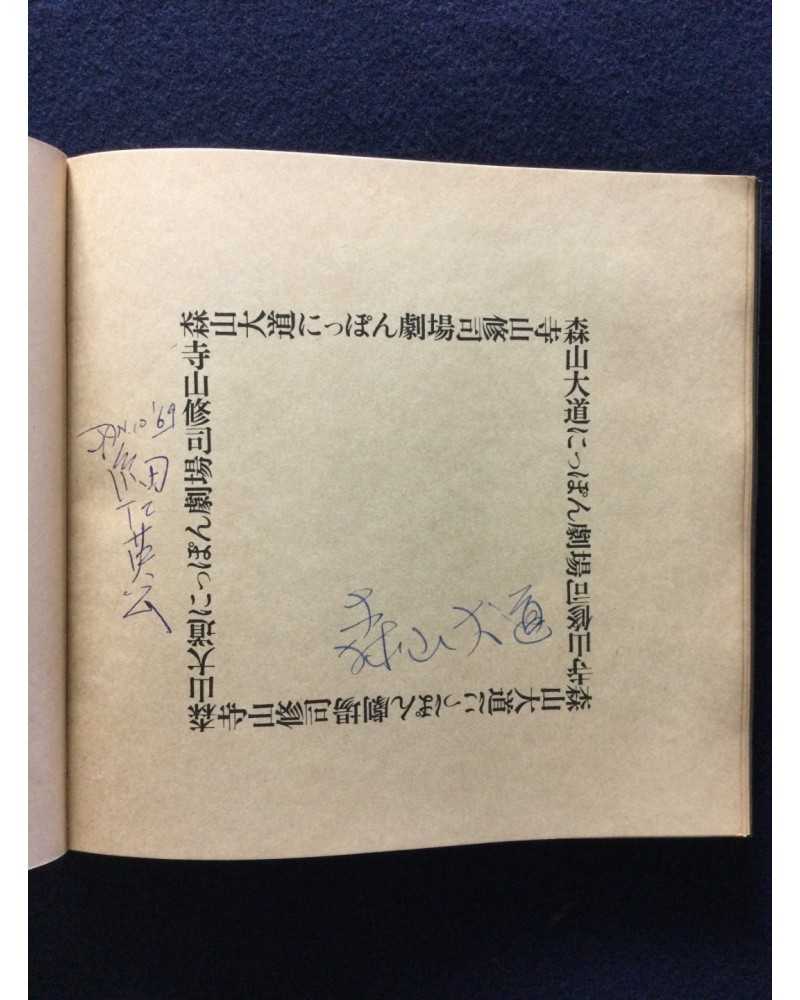 森山大道にっぽん劇場司修山寺
森山大道にっぽん劇場司修山寺
森山大道にっぽん劇場司修山寺
寺山修司劇場にっぽん大道山森
JAN.10 '69
森山大道